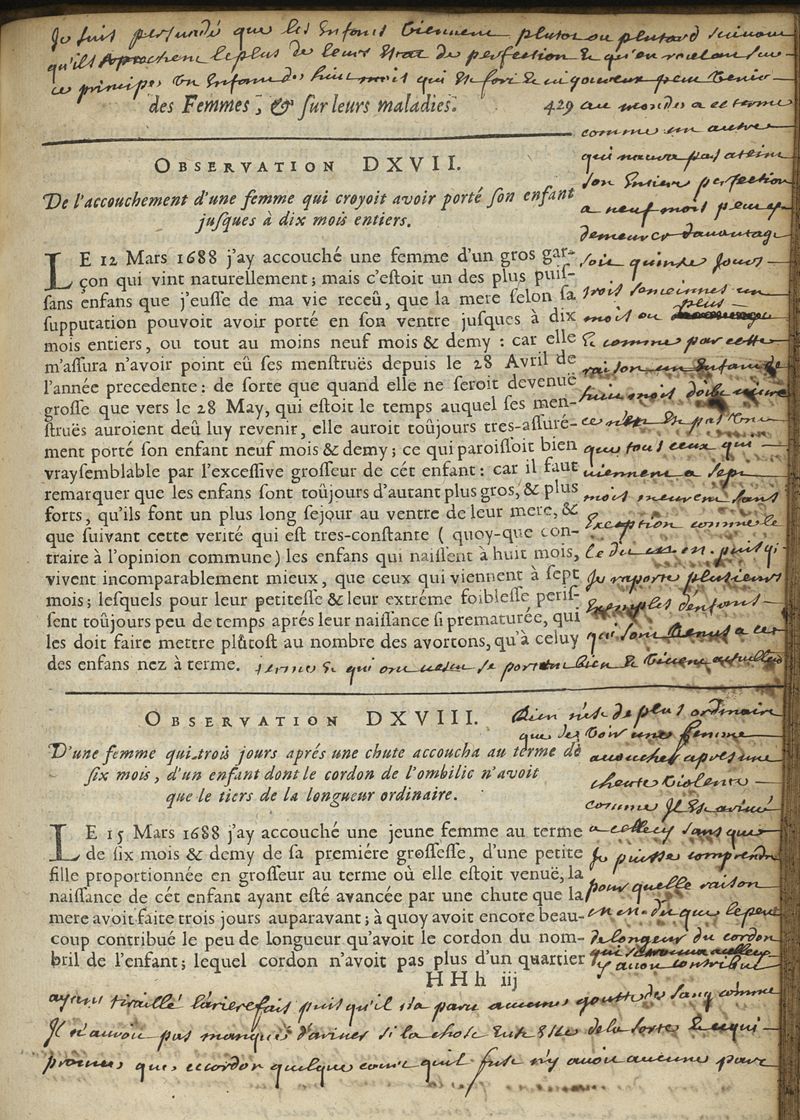 Je suis persuadé que les Enfans viennent plutot ou plutard suivant
qu'ils aprochent le plus de leurs Etat de perfection & qu'en
ce principe un Enfant de huit mois qui est fort & vigoureux peut venir
au monde a ce terme
comme un autre
qui naura pas ateint
son Entiere perfection
a neuf mois peut
demeurer davantage
soit quinze jours
trois semaines un
mois ou plus
& comme par cette
raison un Enfant de
huit mois doit vivre
ce n'est pas
que tous ceux qui
viennent a sept
mois meurent sans
Exception comme le
le dit
Je raporte plusieurs
Exemples d'enfans
qui sont venus a ce
terme & qui ont se portent bien & vivent
des Femmes, & ſur leurs maladies. 429
OBSERVATION DXVII.
De l'accouchement d'une femme qui croyoit avoir porté ſon enfant
juſques à dix mois entiers.
LE 12 Mars 1688 j'ay accouché une femme d'un gros gar-
çon qui vint naturellement; mais c'eſtoit un des plus puiſ-
ſans enfans que j'euſſe de ma vie receû, que la mere ſelon ſa
ſupputation pouvoit avoir porté en ſon ventre juſques à dix
mois entiers, ou tout au moins neuf mois & demy : car elle
m'aſſura n'avoir point eû ſes menſtruës depuis le 28 Avril de
l'année precedente : de ſorte que quand elle ne ſeroit devenuë
groſſe que vers le 28 May, qui eſtoit le temps auquel ſes men-
ſtruës auroient deû luy revenir, elle auroit toûjours tres-aſſuré-
ment porté ſon enfant neuf mois & demy ; ce qui paroiſſoit bien
vrayſemblable par l'exceſſive groſſeur de cét enfant : car il faut
remarquer que les enfans ſont toûjours d'autant plus gros, & plus
forts, qu'ils font un plus long ſejour au ventre de leur mere, &
que ſuivant cette verité qui eſt tres-conſtante ( quoy-que con-
traire à l'opinion commune ) les enfans qui naiſſent à huit mois,
vivent incomparablement mieux, que ceux qui viennent à ſept
mois ; leſquels pour leur petiteſſe & leur extréme foibleſſe, periſ-
ſent toûjours peu de temps aprés leur naiſſance ſi prematurée, qui
les doit faire mettre plûtoſt au nombre des avortons, qu'à celuy
des enfans nez à terme.
OBSERVATION DXVIII.
D'une femme qui trois jours aprés une chute accoucha au terme de
ſix mois, d'un enfant dont le cordon de l'ombilic n'avoit
que le tiers de la longueur ordinaire.
LE 15 Mars 1688 j'ay accouché une jeune femme au terme
de ſix mois & demy de ſa premiére groſſeſſe, d'une petite
fille proportionnée en groſſeur au terme où elle eſtoit venuë, la
naiſſance de cét enfant ayant eſté avancée par une chute que la
mere avoit faite trois jours auparavant ; à quoy avoit encore beau-
coup contribué le peu de longueur qu'avoit le cordon du nom-
bril de l'enfant ; lequel cordon n'avoit pas plus d'un quartier
HHh iij
Rien n'est de plus ordinaire
que de voir une femme
accoucher apres une
cheute violente
comme Il est arivé
a celle cy sans que
Je puisse comprendre
pour quelle raison
dit que le peu
de longeur du cordon
y avoit contribué
ayant tiraillé l'arierefais puis qu'il n'a paru aucune goutte de sang comme
Il n'auroit pas manqué d'ariver si la chose Eut Esté de la sorte
que ce cordon quelque court quil fust n'y avoit aucune part